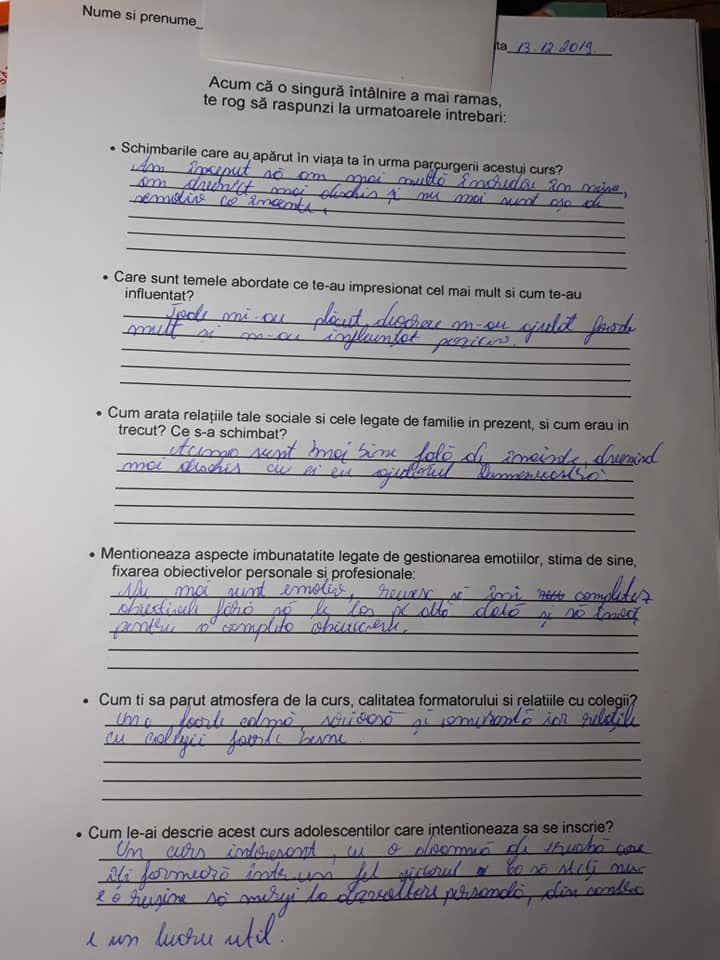 Nume si prenume_
ta 13.12.2019
Acum că o singură întâlnire a mai ramas,
te rog să raspunzi la urmatoarele intrebari:
• Schimbarile care au apărut în viața ta în urma parcurgerii acestui curs?
Am început să am mai multă încredere în mine,
am devenit mai deschis și nu mai sunt așa de
emotiv ca înainte.
• Care sunt temele abordate ce te-au impresionat cel mai mult si cum te-au
influentat?
Toate mi-au plăcut, deoarece m-au ajutat foarte
mult și m-au influențat pozitiv.
• Cum arata relațiile tale sociale si cele legate de familie in prezent, si cum erau in
trecut? Ce s-a schimbat?
Acum sunt mai bine față de înainte, devenind
mai deschis cu ei cu ajutorul
• Mentioneaza aspecte imbunatatite legate de gestionarea emotiilor, stima de sine,
fixarea obiectivelor personale si profesionale:
Nu mai sunt emotiv, reușesc să îmi completez
obiectivele fără să le las pe altă dată și să
pentru a completa
• Cum ti sa parut atmosfera de la curs, calitatea formatorului si relatiile cu colegii?
Una foarte calmă, și iar relațiile
cu colegii foarte bune
• Cum le-ai descrie acest curs adolescentilor care intentioneaza sa se inscrie?
Un curs interesant, cu o doamnă de treabă care
îți formează într-un fel viitorul Ca să știți nu
e o rușine să mergi la dezvoltare personală, din contra
e un lucru util.